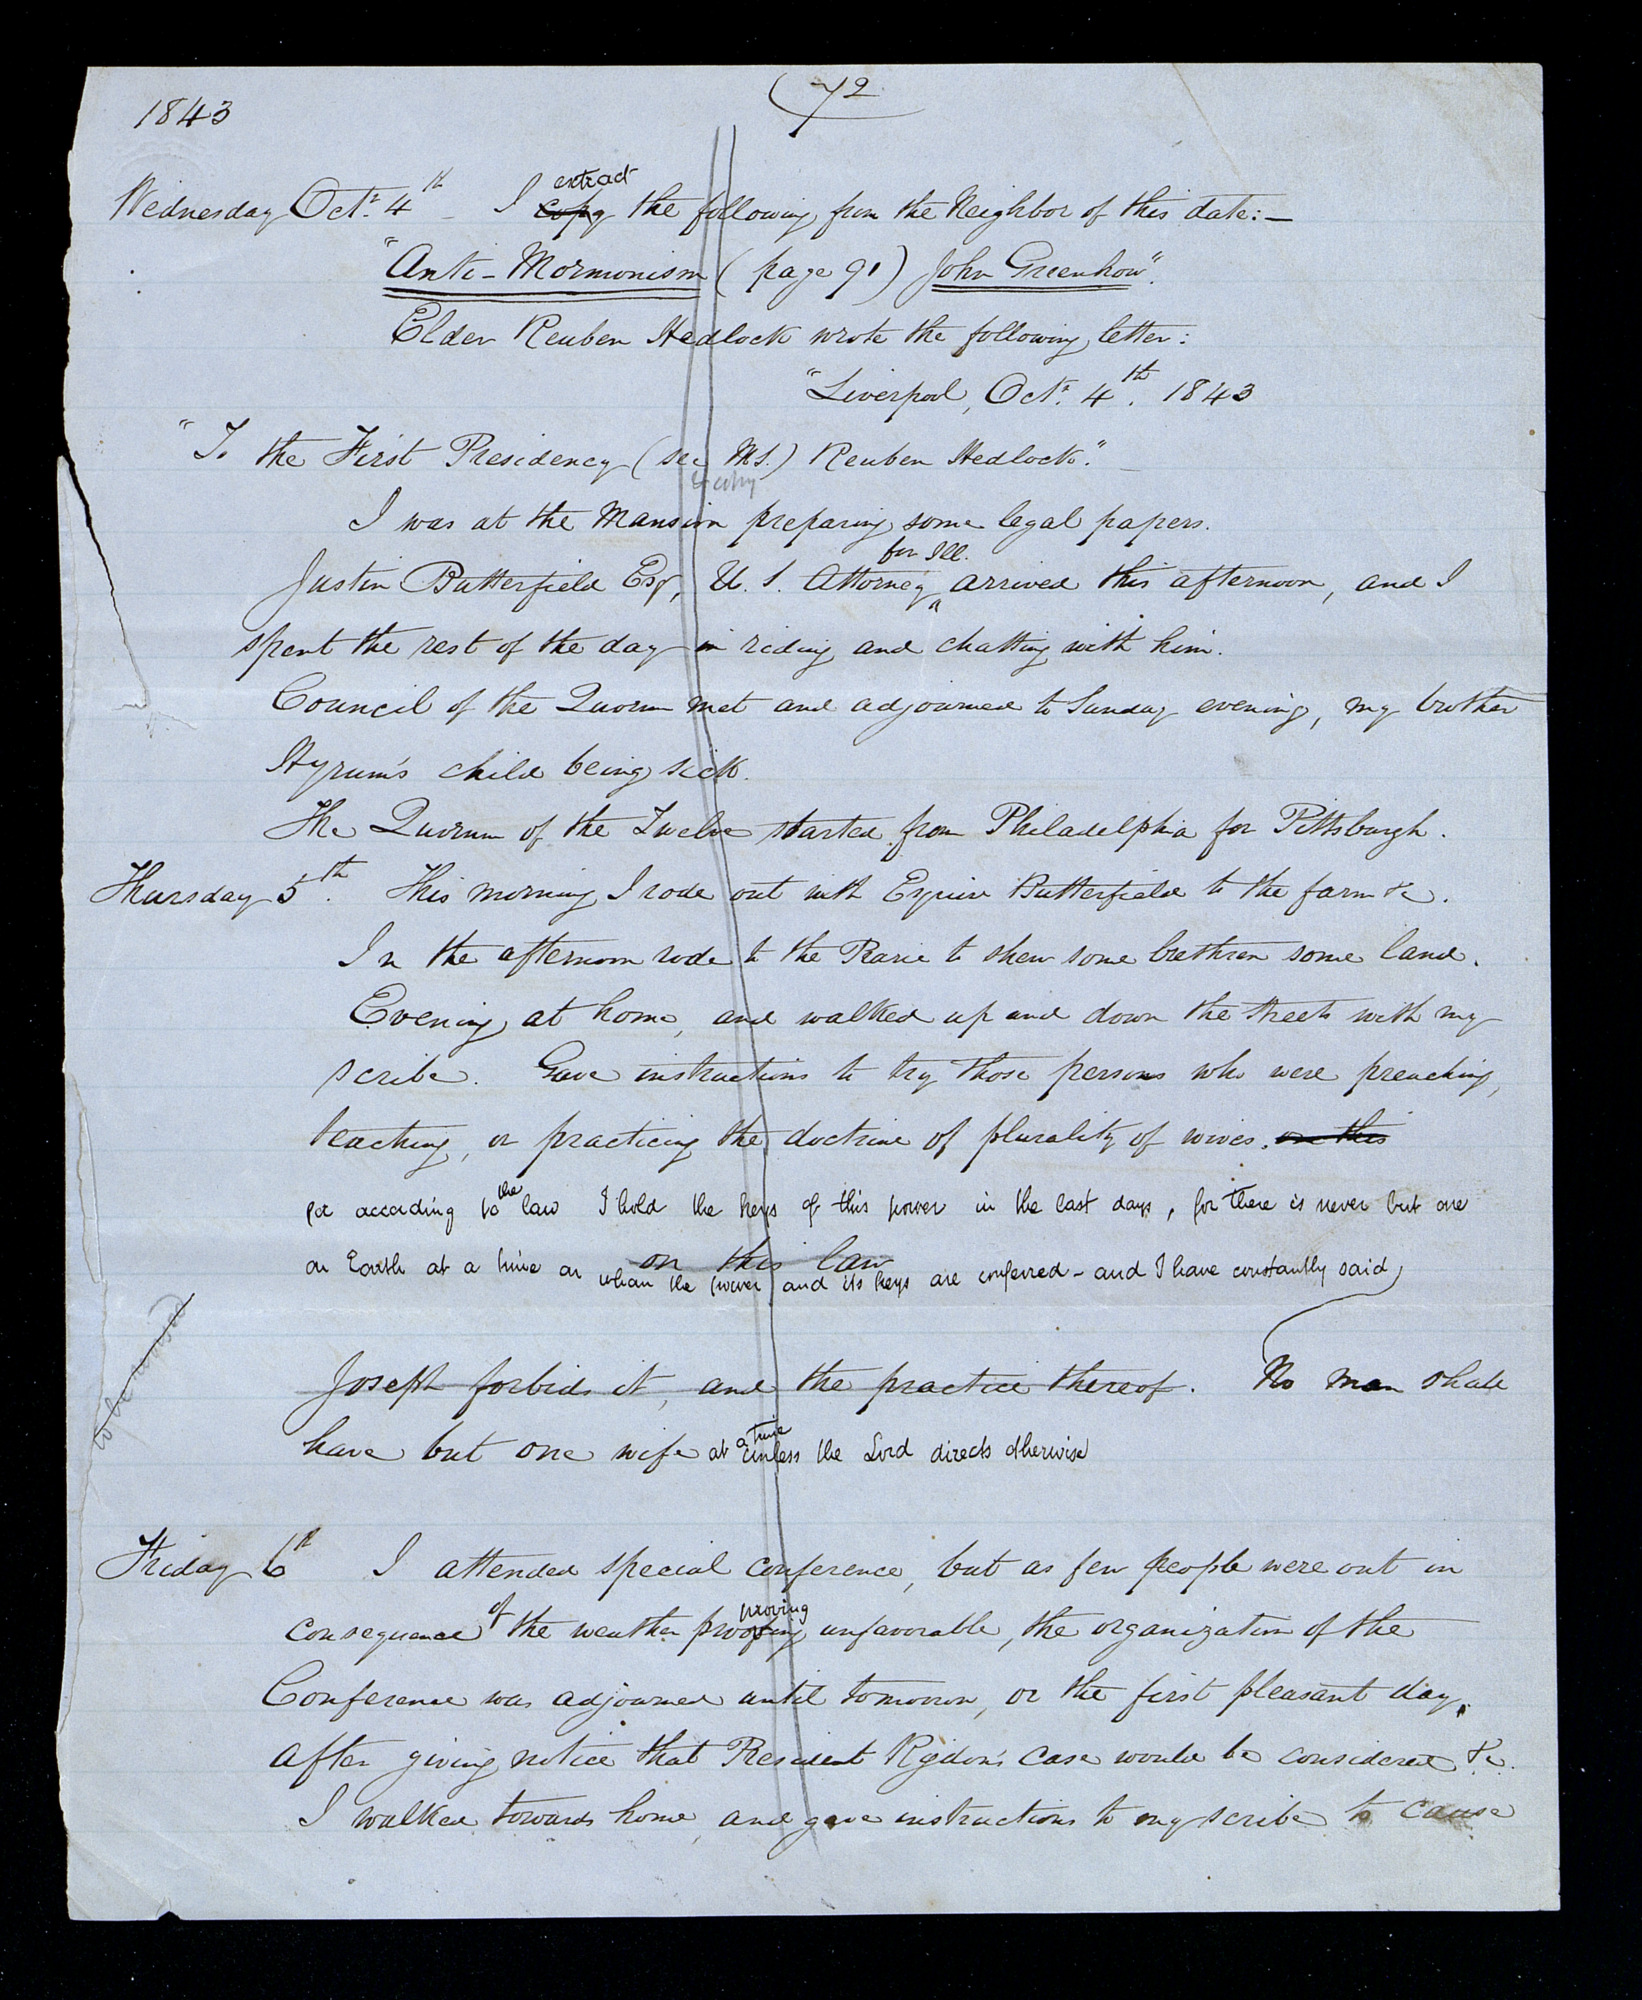 72
1843
extract
Wednesday Oct.r 4th – I copy the following from the Neighbor of this date:–
"Anti-Mormonism (page 91) John Greenhow".
Elder Reuben Hedlock wrote the following letter:
"Liverpool, Oct.r 4th. 1843
"To the First Presidency (see MS.) Reuben Hedlock."
I was at the Mansion preparing some legal papers.
for Ill.
Justin Butterfield Esq, U. S. Attorney arrived this afternoon, and I
spent the rest of the day in riding and chatting with him.
Council of the Quorum met and adjourned to Sunday evening, my brother
Hyrum's child being sick.
The Quorum of the Twelve started from Philadelphia for Pittsburgh.
Thursday 5th. This morning I rode out with Esquire Butterfield to the farm &c.
In the afternoon rode to the Prarie to shew some brethren some land.
Evening at home, and walked up and down the streets with my
scribe. Gave instructions to try those persons who were preaching,
teaching, or practicing the doctrine of plurality of wives. on this
the
for according to law I hold the keys of this power in the last days, for there is never but one
on Earth at a time on whom the power and its keys are conferred – and I have constantly said
on this law
Joseph forbids it, and the practice thereof. No man shall
a time
have but one wife at unless the Lord directs otherwise
to be revised
Friday 6th I attended special conference, but as few people were out in
of proving
consequence the weather proofing unfavorable, the organization of the
Conference was adjourned until tomorrow, or the first pleasant day,
after giving notice that President Rigdon's case would be considered &c.
I walked towards home, and gave instructions to my scribe to cause